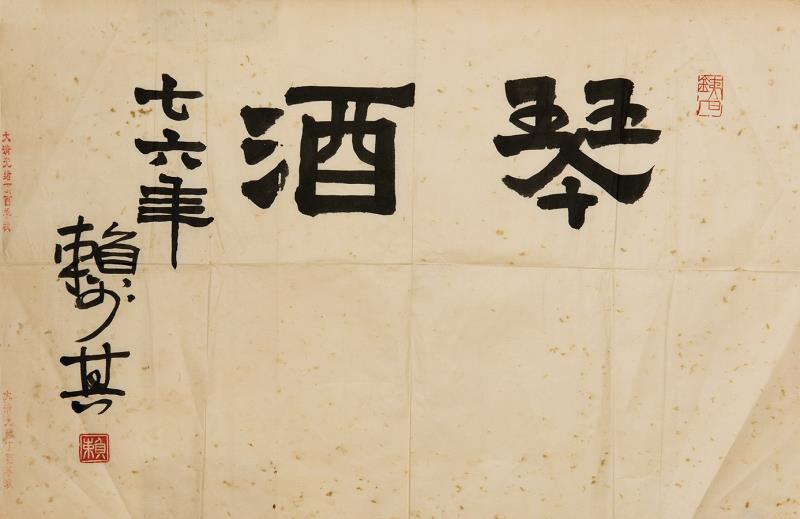 琴酒
七六年
賴少其
賴